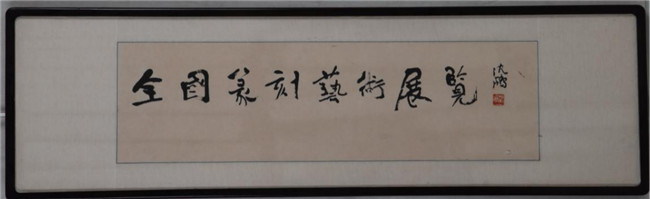 全國篆刻藝術展覽
沈鵬